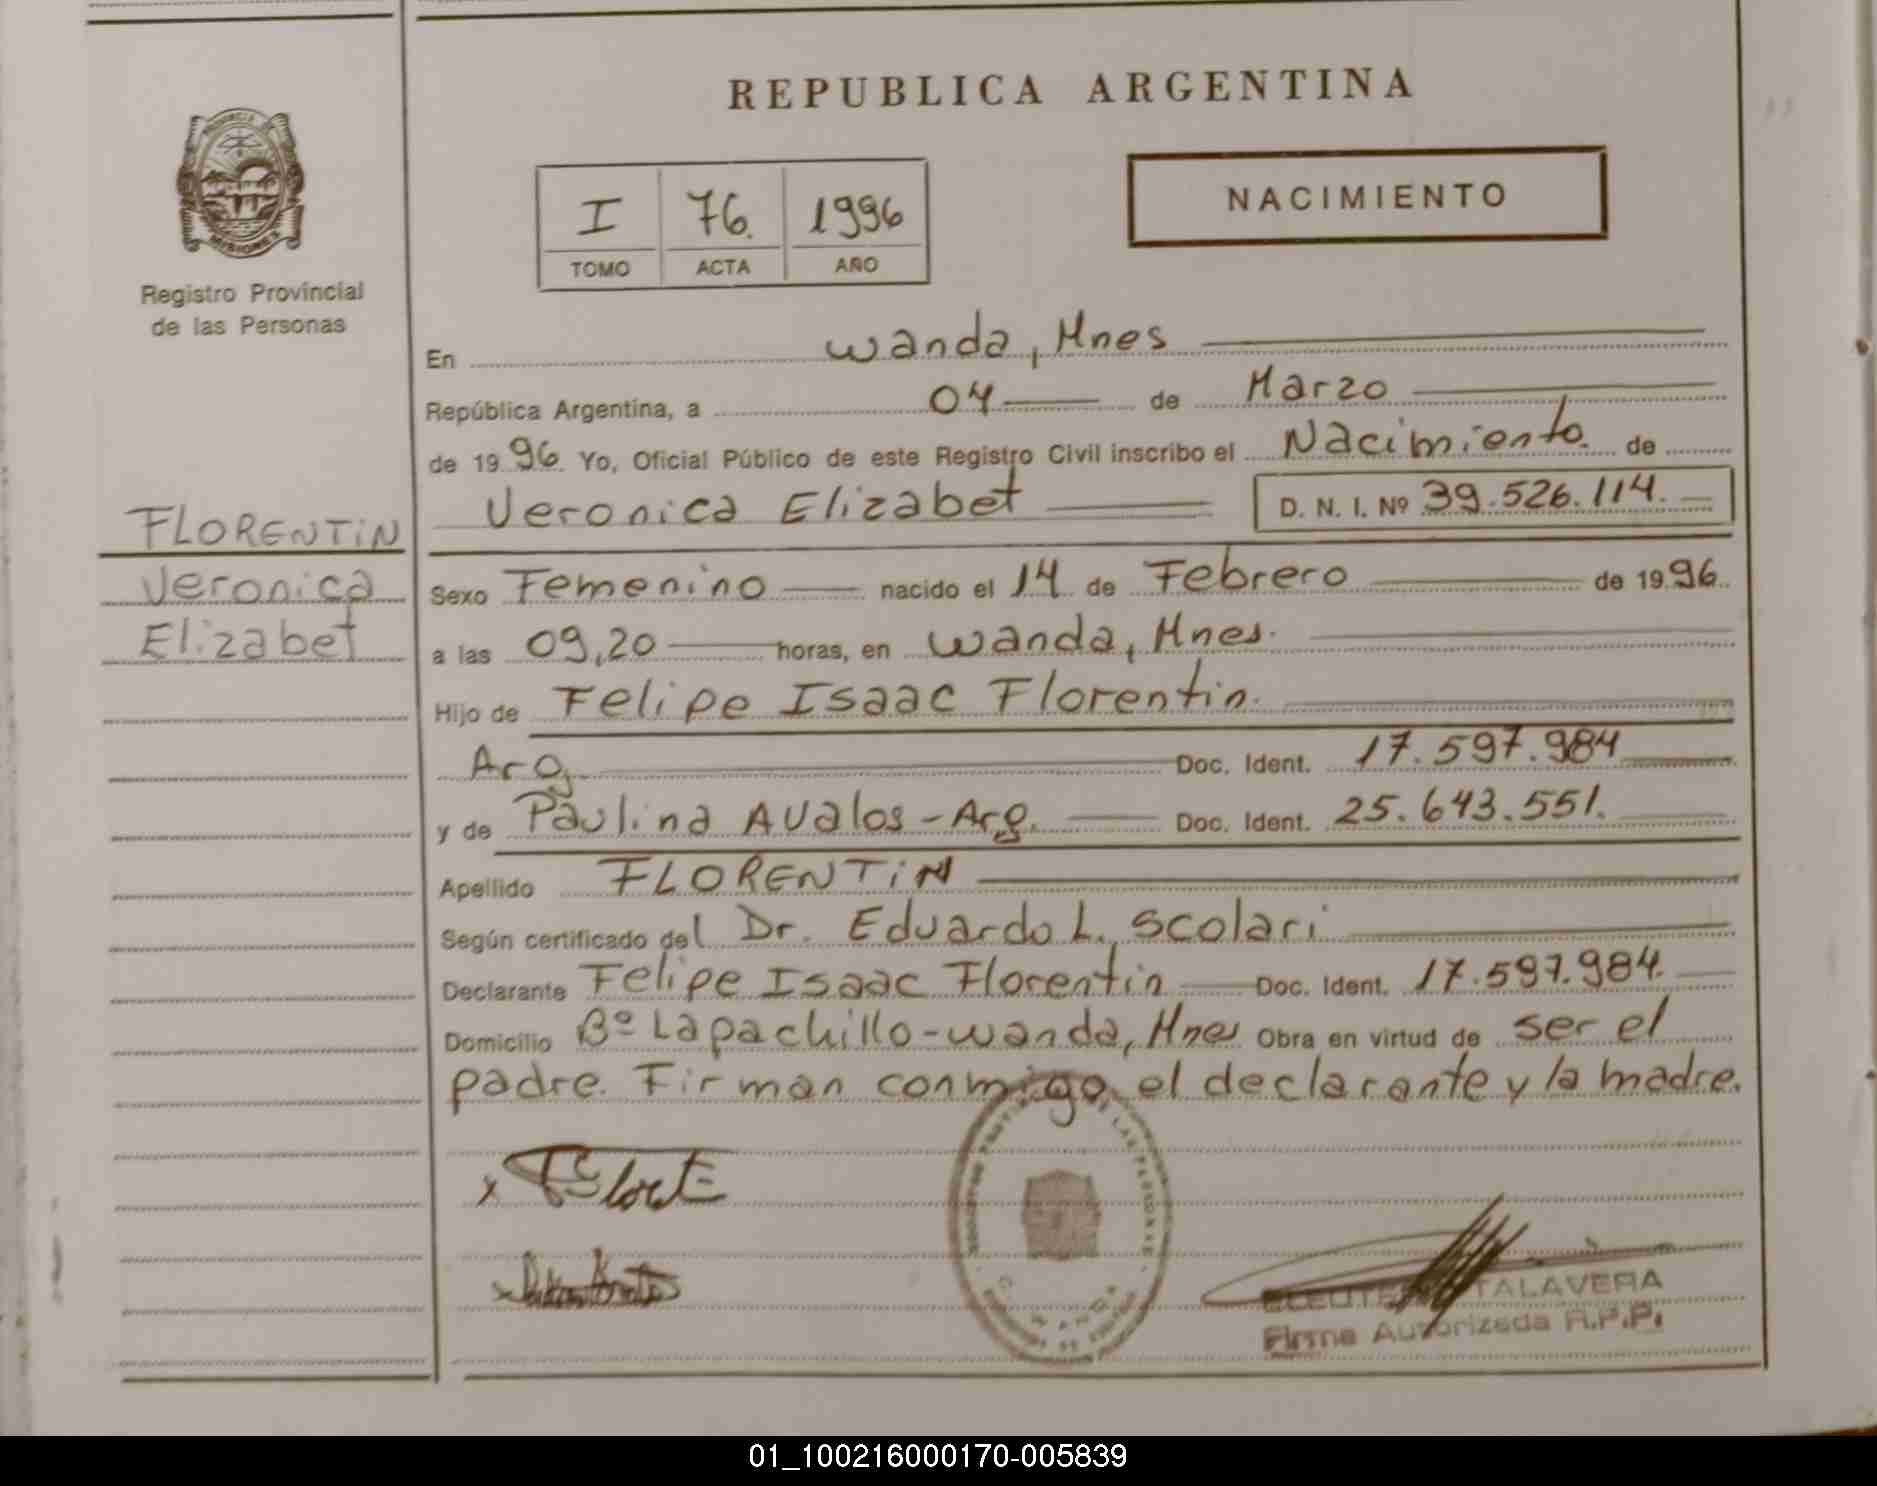 REPUBLICA ARGENTINA
PROVINCIA DE
MISIONES
Registro Provincial
de las Personas
I 76. 1996
TOMO ACTA AÑO
NACIMIENTO
En Wanda, Mnes
República Argentina, a 04 de Marzo
de 1996. Yo, Oficial Público de este Registro Civil inscribo el Nacimiento. de
Veronica Elizabet D. N. I. Nº 39.526.114.
FLORENTIN
Veronica
Elizabet
Sexo Femenino nacido el 14 de Febrero de 1996.
a las 09,20 horas, en Wanda, Mnes.
Hijo de Felipe Isaac Florentin.
Arg. Doc. Ident. 17.597.984
y de Paulina Avalos - Arg. Doc. Ident. 25.643.551.
Apellido FLORENTIN
Según certificado del Dr. Eduardo L. Scolari
Declarante Felipe Isaac Florentin Doc. Ident. 17.597.984.
Domicilio Bº Lapachillo - Wanda, Mnes Obra en virtud de ser el
padre. Firman conmigo el declarante y la madre.
TALAVERA
Firma Autorizada R.P.P.
01_100216000170-005839